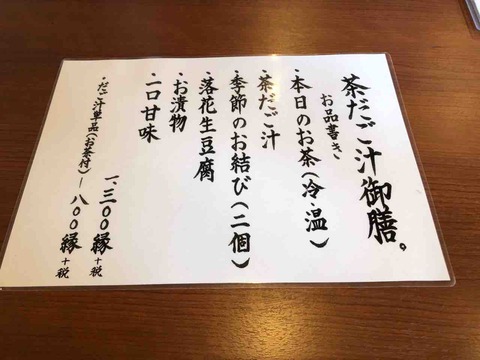 茶だご汁御膳。
お品書き
・本日のお茶(冷・温)
・茶だご汁
・季節のお結び(二個)
・落花生豆腐
・お漬物
・一口甘味
一、三〇〇縁+税
・だご汁単品(お茶付)ー八〇〇縁+税